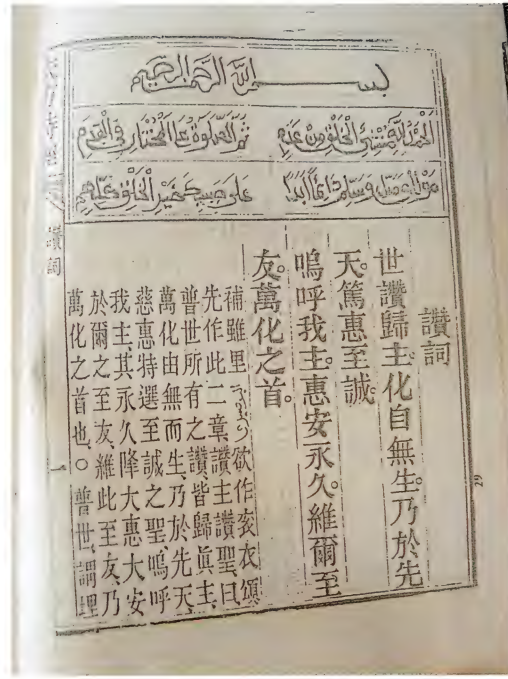 بســـــم الله الرحمن الرحيم
الحمد لله منشئ الخلق من عدم ثم الصلوة على المختار في القدم
مولاي صل وسلم دائما أبدا على حبيبك خير الخلق كلهم
讚詞
世讚歸主。化自無生。乃於先
天。篤惠至誠。
嗚呼我主。惠安永久。維爾至
友。萬化之首。
補雖里欲作袞衣頌
先作此二章讚主讚聖曰
普世所有之讚皆歸眞主、
萬化由無而生、乃於先天
慈惠特選至誠之聖、嗚呼
我主、其永久降大惠大安
於爾之至友、維此至友、乃
萬化之首也、○普世、謂理
讚詞
一
29